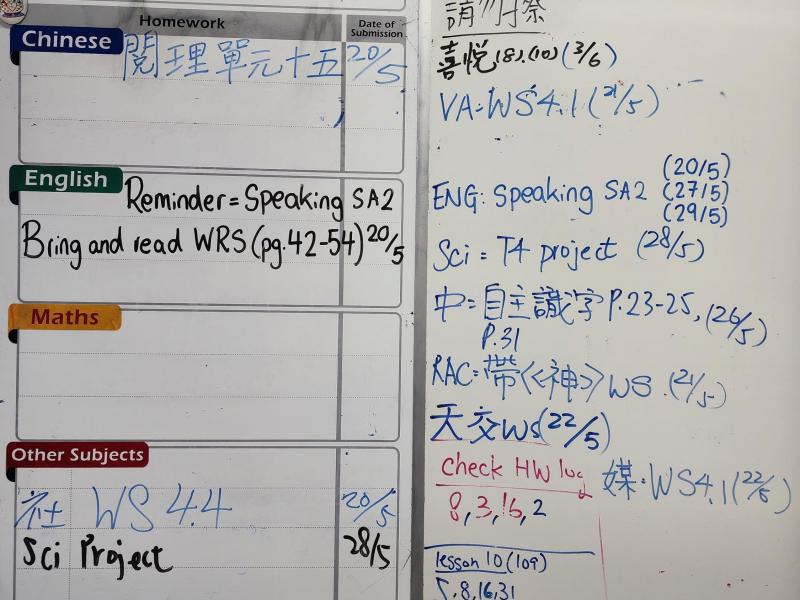 Homework
Date of
Submission
Chinese
閱理單元十五 20/5
English
Reminder = Speaking SA2
Bring and read WRS (pg.42-54) 20/5
Maths
Other Subjects
社 WS 4.4 20/5
Sci Project 28/5
喜悅(8).(10) (3/6)
VA: WS4.1 (21/5)
ENG: Speaking SA2 (20/5)
(27/5)
(29/5)
Sci = T4 project (28/5)
中=自主識字 P.23-25, (26/5)
P.31
RAC=帶《神》WS (21/5)
天交WS(22/5)
check HW log
8, 3, 16, 2
媒:WS4.1(22/5)
lesson 10 (109)
5, 8, 16, 31